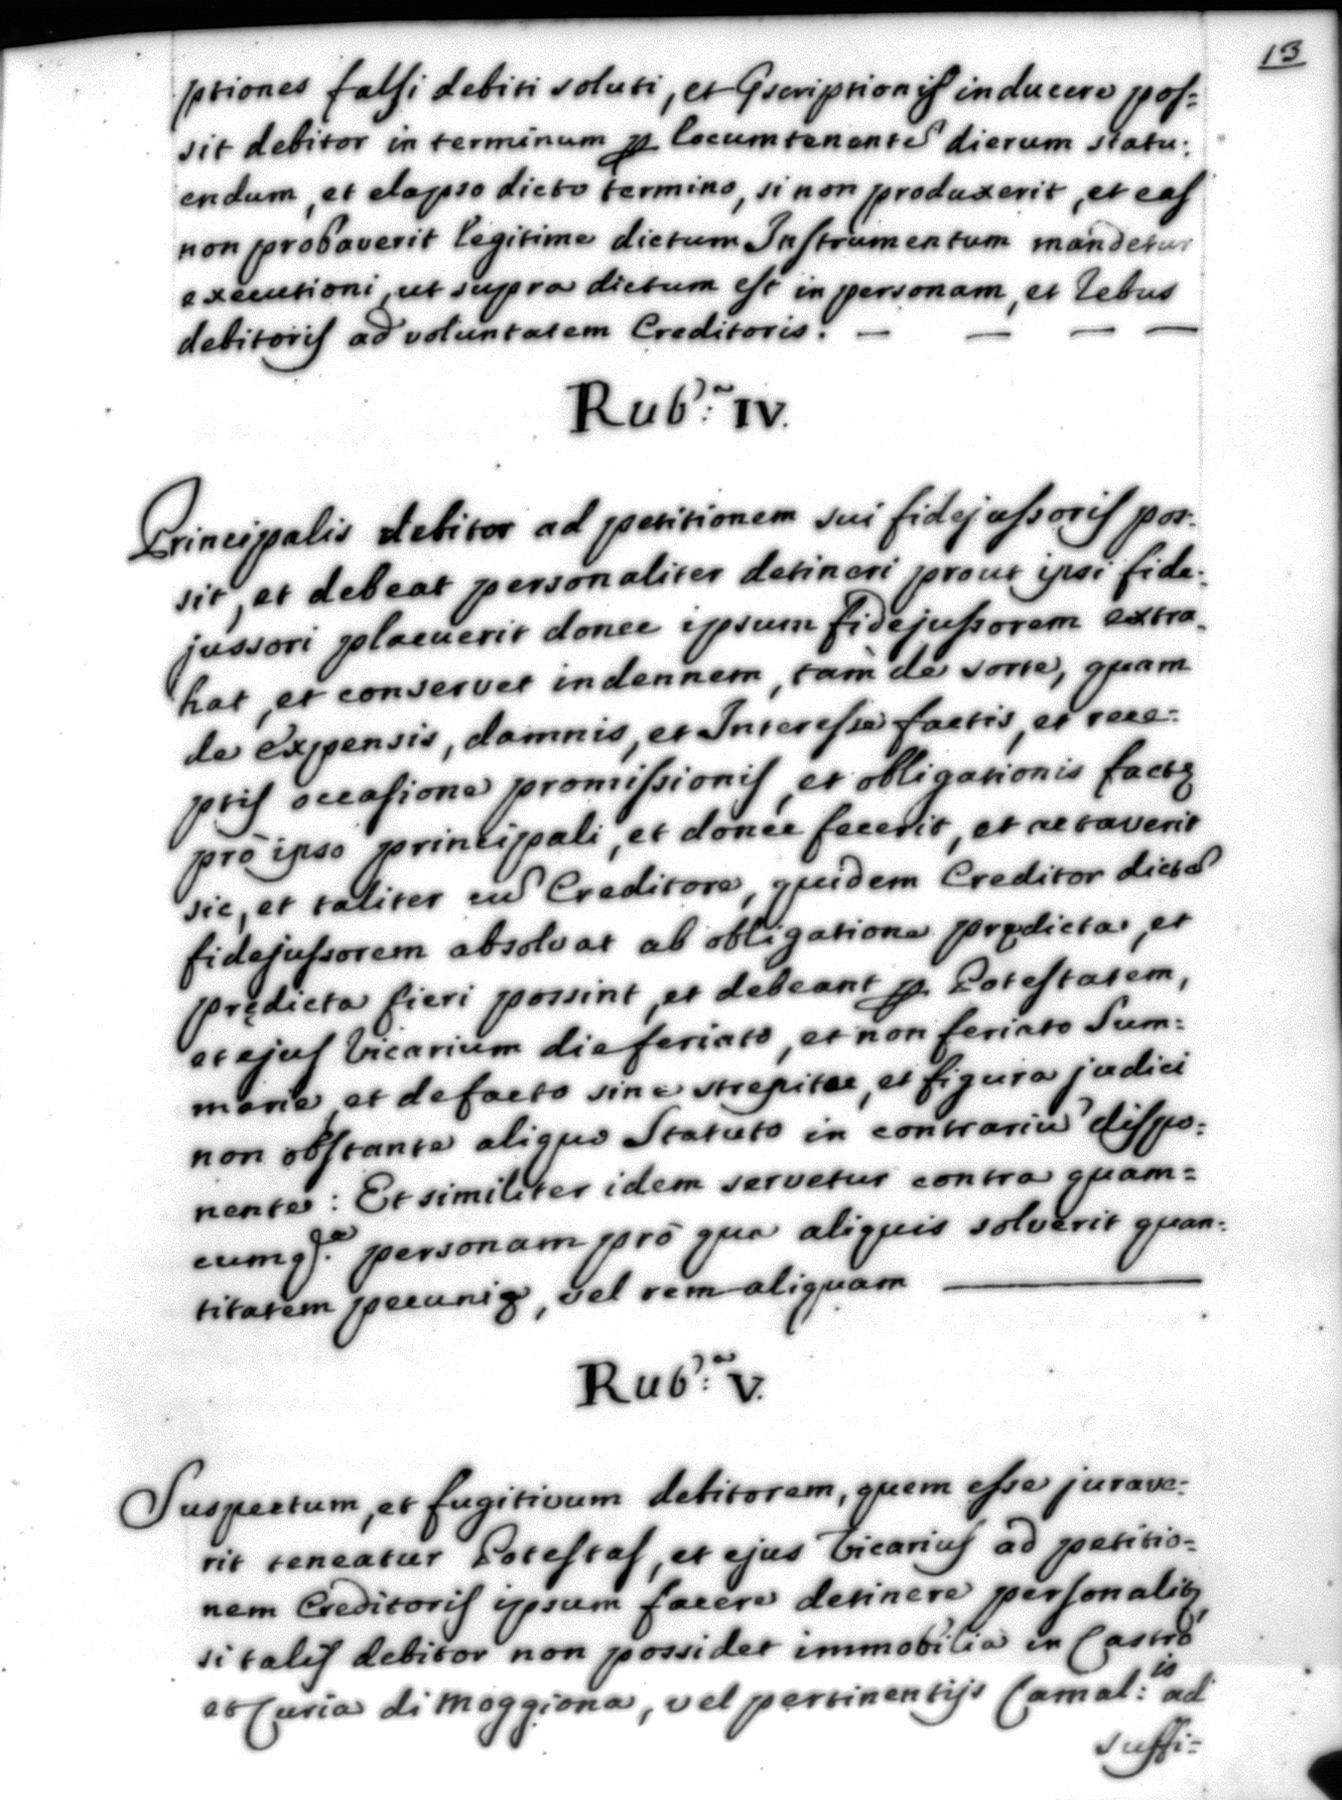 13
ptiones falsi debiti soluti, et Pscriptionis inducere pos=
sit debitor in terminum p locumtenente dierum statu:
endum, et elapso dicto termino, si non produxerit, et eas
non probaverit legitime dictum Instrumentum mandetur
executioni, ut supra dictum est in personam, et rebus
debitoris ad voluntatem Creditoris. — — — —
Rub:ª IV.
Principalis debitor ad petitionem sui fidejussoris pos-
sit, et debeat personaliter detineri prout ipsi fide:
jussori placuerit donec ipsum fidejussorem extra-
hat, et conservet indennem, tam de sorte, quam
de expensis, damnis, et Interesse factis, et rece=
ptis occasione promissionis, et obligationis factę
prò ipso principali, et donec fecerit, et actaverit
sic, et taliter cū Creditore, quidem Creditor dictū
fidejussorem absolvat ab obligatione prędicta, et
prędicta fieri possint, et debeant p Potestatem,
et ejus Vicarium die feriato, et non feriato Sum=
marie, et de facto sine strepitu, et figura judici
non obstante aliquo Statuto in contrariū dispo=
nente: Et similiter idem servetur contra quam=
cumq.ª personam prò qua aliquis solverit quan-
titatem pecunię, vel rem aliquam ———
Rub:ª V.
Suspectum, et fugitivum debitorem, quem esse jurave=
rit teneatur Potestas, et ejus Vicarius ad petitio=
nem Creditoris ipsum facere detinere personalitę,
si talis debitor non possidet immobilia in Castro
et Curia di Moggiona, vel pertinentijs Camal:is ad
suffi=